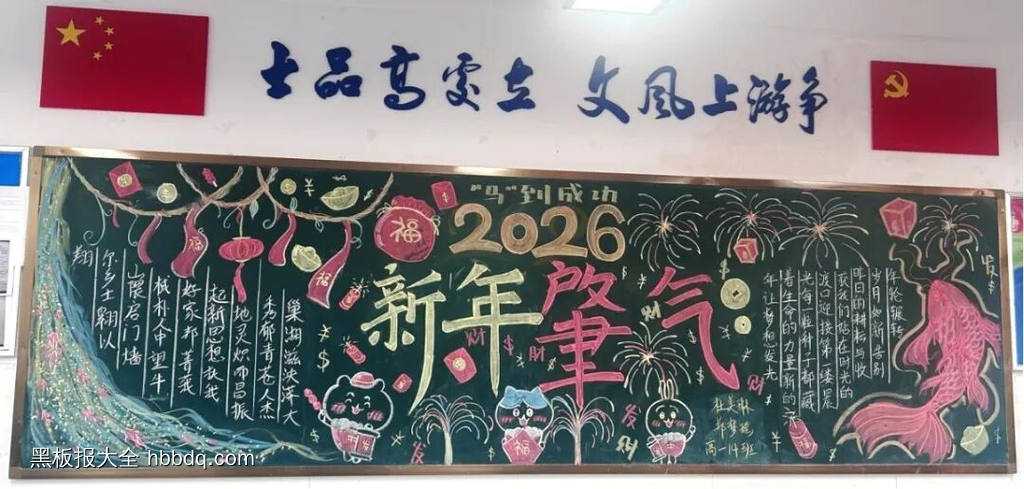 士品高處立 文风上游争
"马"到成功
2026
新年肇气
巢湖滋泱泽大
秀郁青苍人杰
地灵炽帝昌振
起新思想扶我
好家邦菁莪
棫朴人中望牛
山黉启门墙
尔多士翱以
翔
年轮辗转
岁月如新告别
昨日的耕耘与收
获我们站在时光的
渡口迎接第一缕晨
光每一粒种子都藏
着生命的力量新的
年让梦想发光
高一14班
福
福
福
福
发
发
财
财
黑板报大全 hbbdq.com